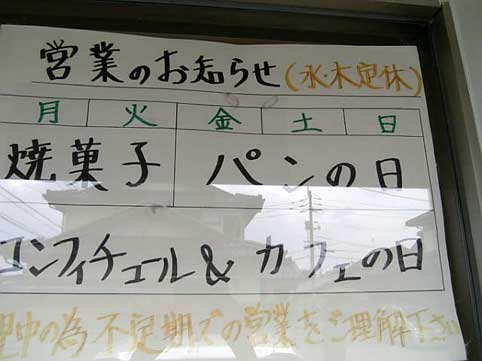 営業のお知らせ(水・木定休)
月 火 金 土 日
焼菓子 パンの日
コンフィチュール & カフェの日
中の為不定期での営業をご理解下さい